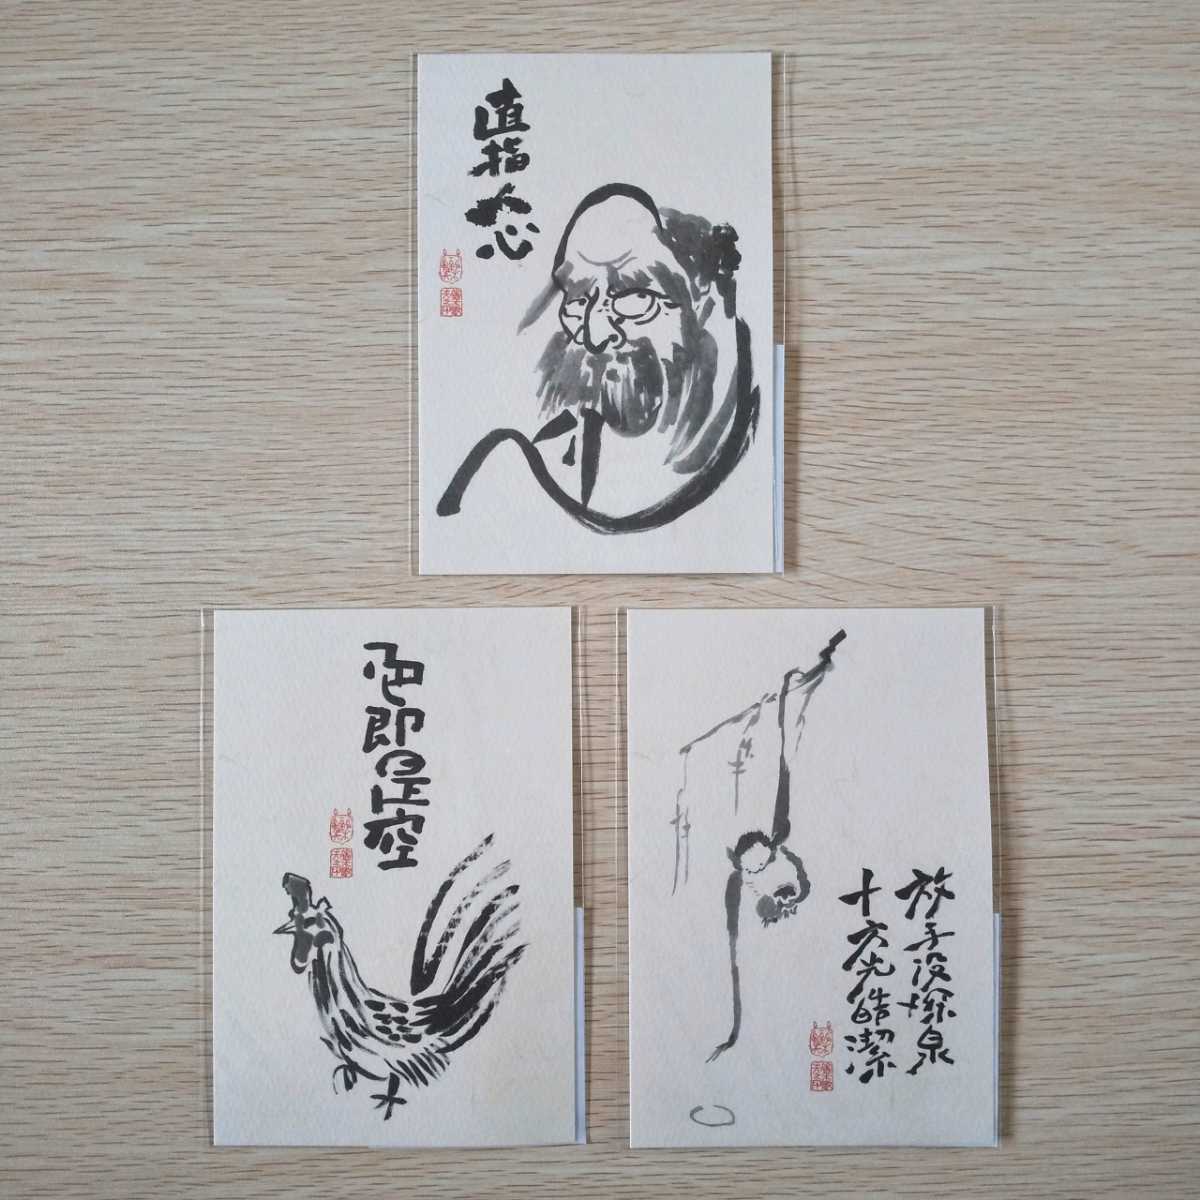 直指人心
色即是空
放手没深泉
十方光皓潔